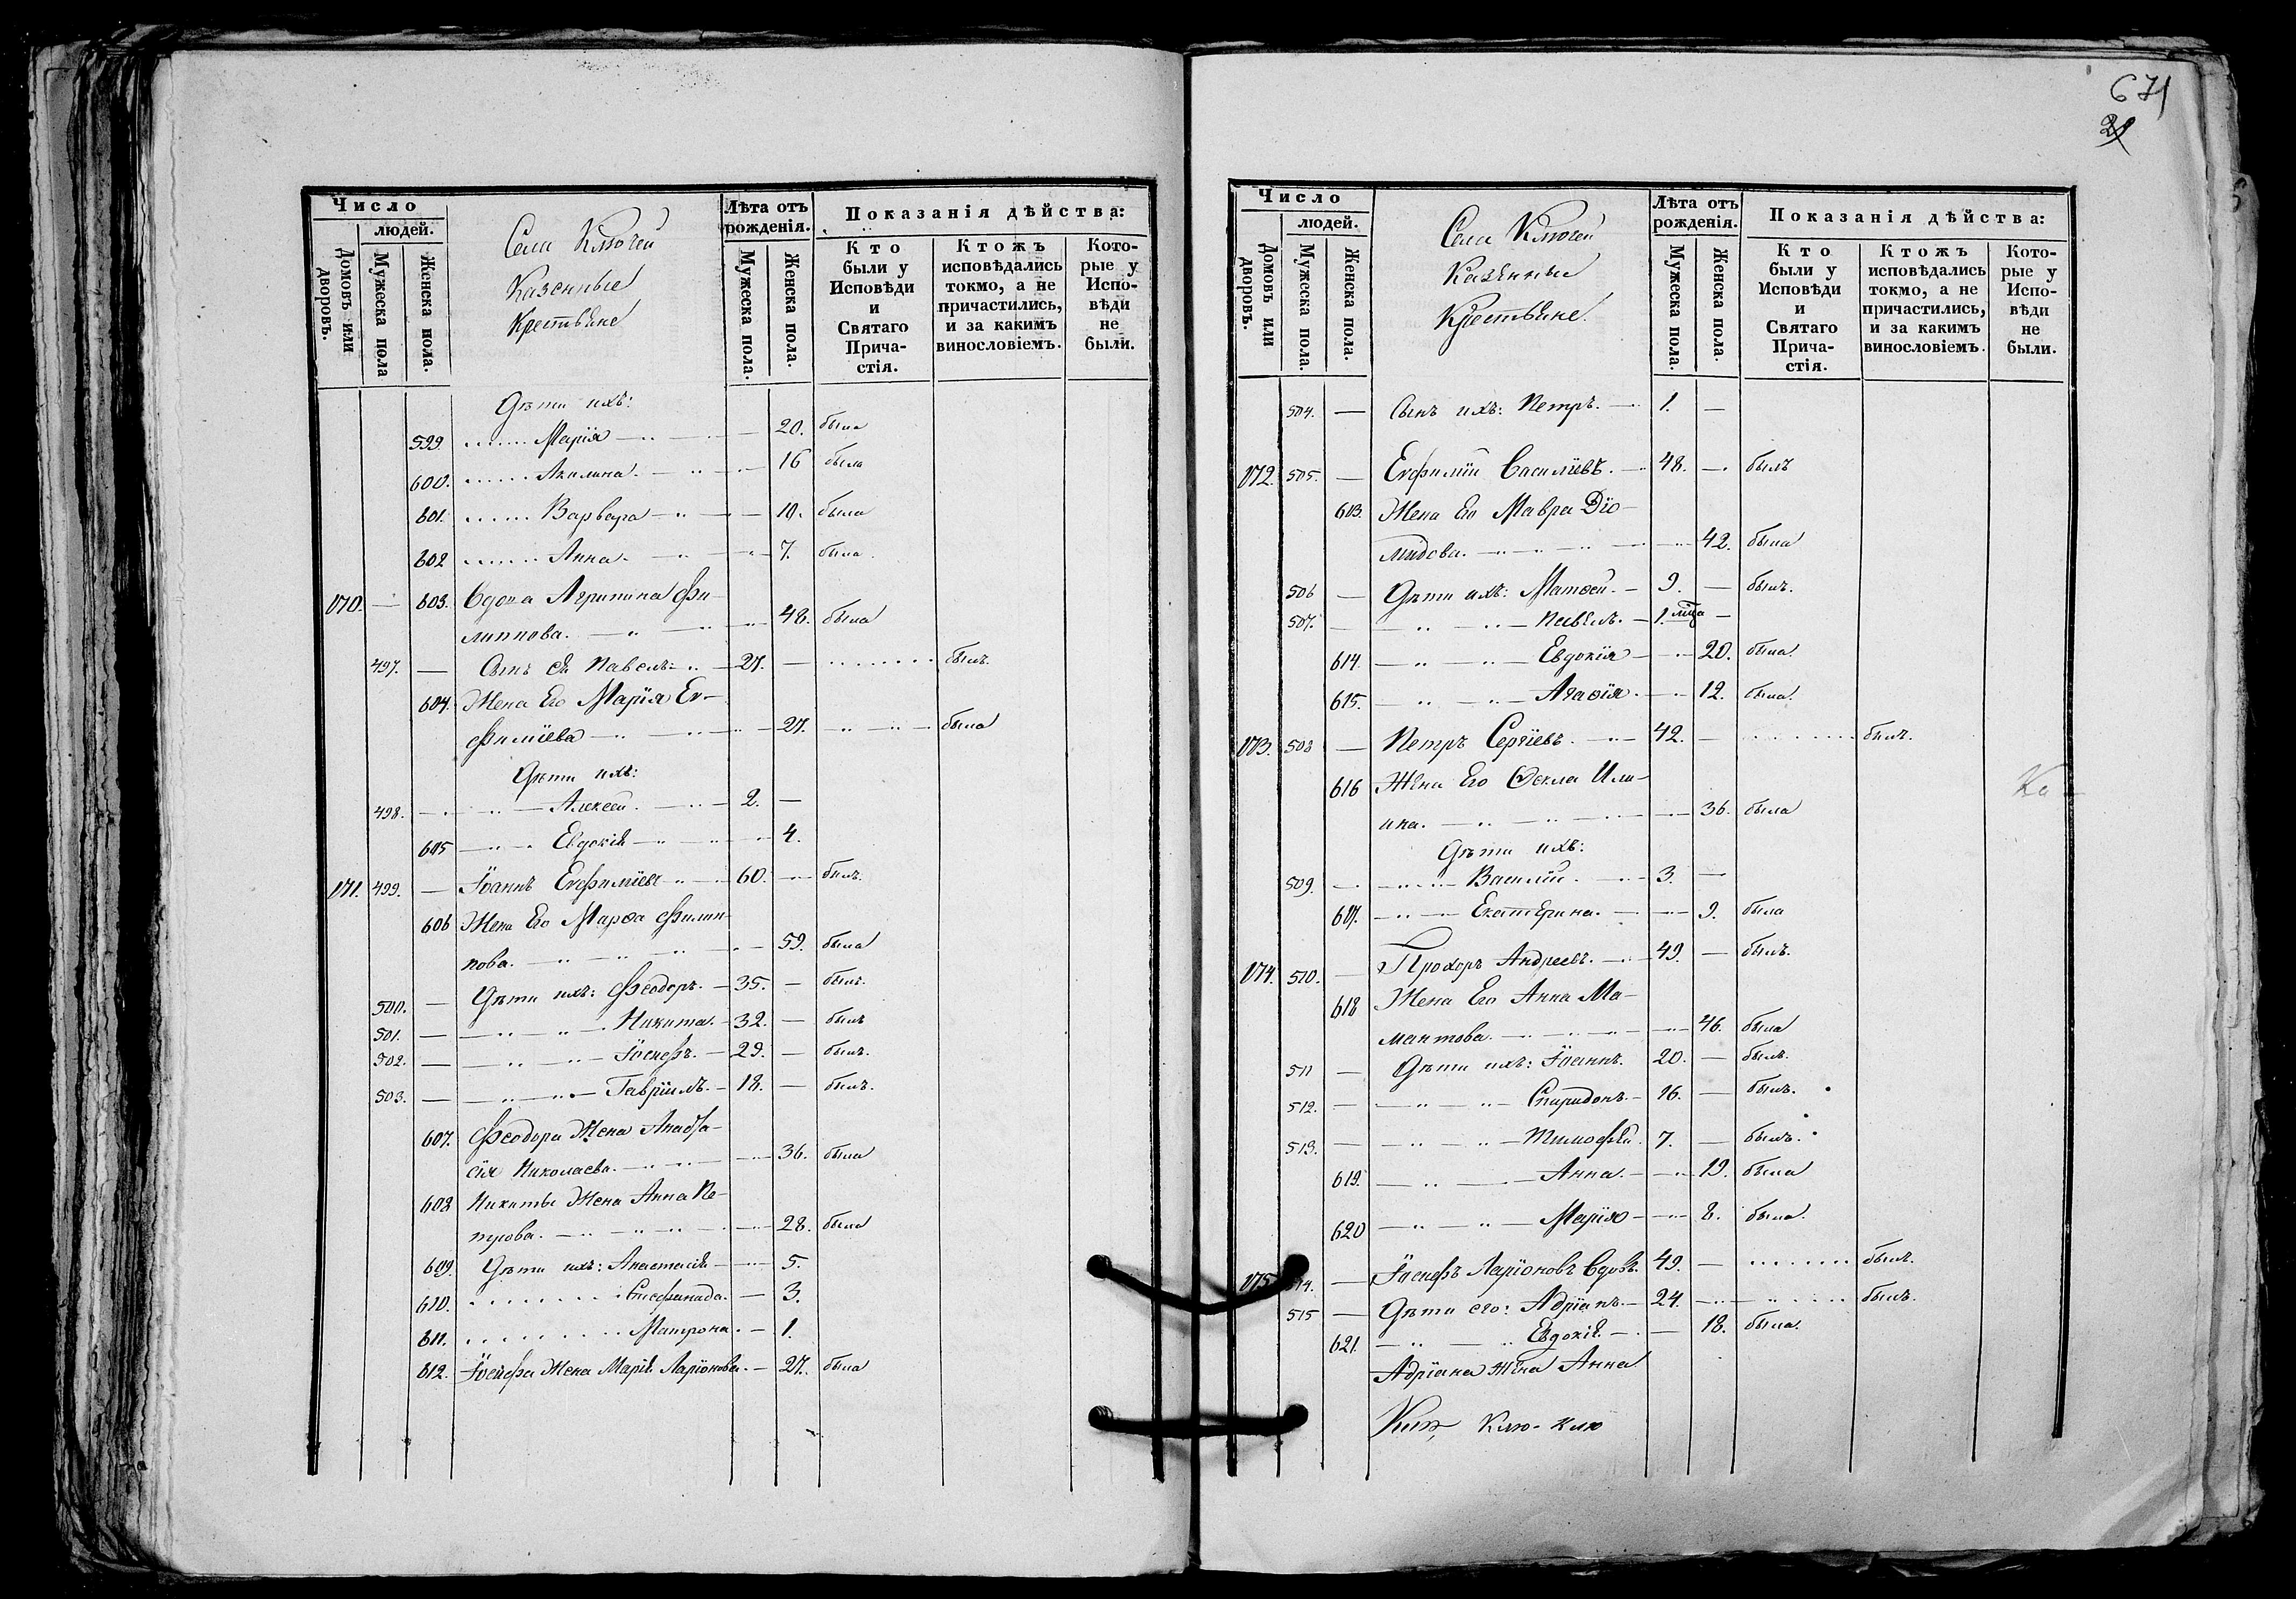 Число
людей.
Домовъ или дворовъ.
Мужеска пола
Женска пола.
Села Ключей
Казенные
Крестьяне
Лѣта отъ рожденія.
Мужеска пола.
Женска пола.
Показанія дѣйства:
Кто были у Исповѣди и Святаго Причастія.
Ктожъ исповѣдались токмо, а не причастились, и за какимъ винословіемъ.
Которые у Исповѣди не были.
Дѣти ихъ:
599. Марія 20. была
600. Акилина. 16 была
601. Варвара 10. была
602 Анна. 7. была.
170. — 603. Вдова Агрипина Фи-
липпова. 48. была
497. — Сынъ ея Павелъ 27. — былъ.
604. Жена Его Марія Ев-
фиміева 27. была
Дѣти ихъ:
498. Алексей. 2. —
605 Евдокія 4.
171. 499. — Іоаннъ Евфиміевъ 60. — былъ.
606 Жена Его Марѳа Филип-
пова. 59. была
500. — Дѣти ихъ: Феодоръ. 35. — былъ.
501. — Никита. 32. — былъ
502. — Іосифъ. 29. — былъ.
503. — Гавріилъ. 18. — былъ.
607. Феодора Жена Анаста-
сія Николаева. 36. была
608 Никиты Жена Анна Пе-
трова. 28. была
609. Дѣти ихъ: Анастасія 5.
610. 3.
611. Матрона. 1.
612. Іосифа Жена Марія Ларіонова. 27. была
671
29
Число
людей.
Домовъ или дворовъ.
Мужеска пола.
Женска пола.
Села Ключей
Казенные
Крестьяне.
Лѣта отъ рожденія.
Мужеска пола.
Женска пола.
Показанія дѣйства:
Кто были у Исповѣди и Святаго Причастія.
Ктожъ исповѣдались токмо, а не причастились, и за какимъ винословіемъ.
Которые у Исповѣди не были.
504. — Сынъ ихъ: Петръ. 1. —
172. 505. — Евфимій Василіевъ. 48. — былъ
613. Жена Его Мавра Діо-
мидова. 42. была
506 — Дѣти ихъ: Матѳей. 9. — былъ.
507. — Павелъ. 1. мца —
614. Евдокія 20. была.
615. Агаѳія. 12. была.
173. 508 — Петръ Сергіевъ. 42. — былъ.
616 Жена Его Ѳекла Или-
ина. 36. была
Дѣти ихъ:
509. Василій. 3. —
617. Екатерина. 9. была
174. 510. — Прохоръ Андреевъ. 49. — былъ.
618 Жена Его Анна Ма-
мантова. 46. была
511 — Дѣти ихъ: Іоаннъ. 20. — былъ.
512. — Спиридонъ. 16. — былъ.
513. — Тимофей. 7. — былъ.
619. Анна. 19. была
620 Марія 8. была.
175. — Іосифъ Ларіоновъ Вдовъ. 49. — былъ.
515 — Дѣти его: Адріанъ. 24. былъ.
621. Евдокія. 18. была.
Адріана Жена Анна
Клю-клю